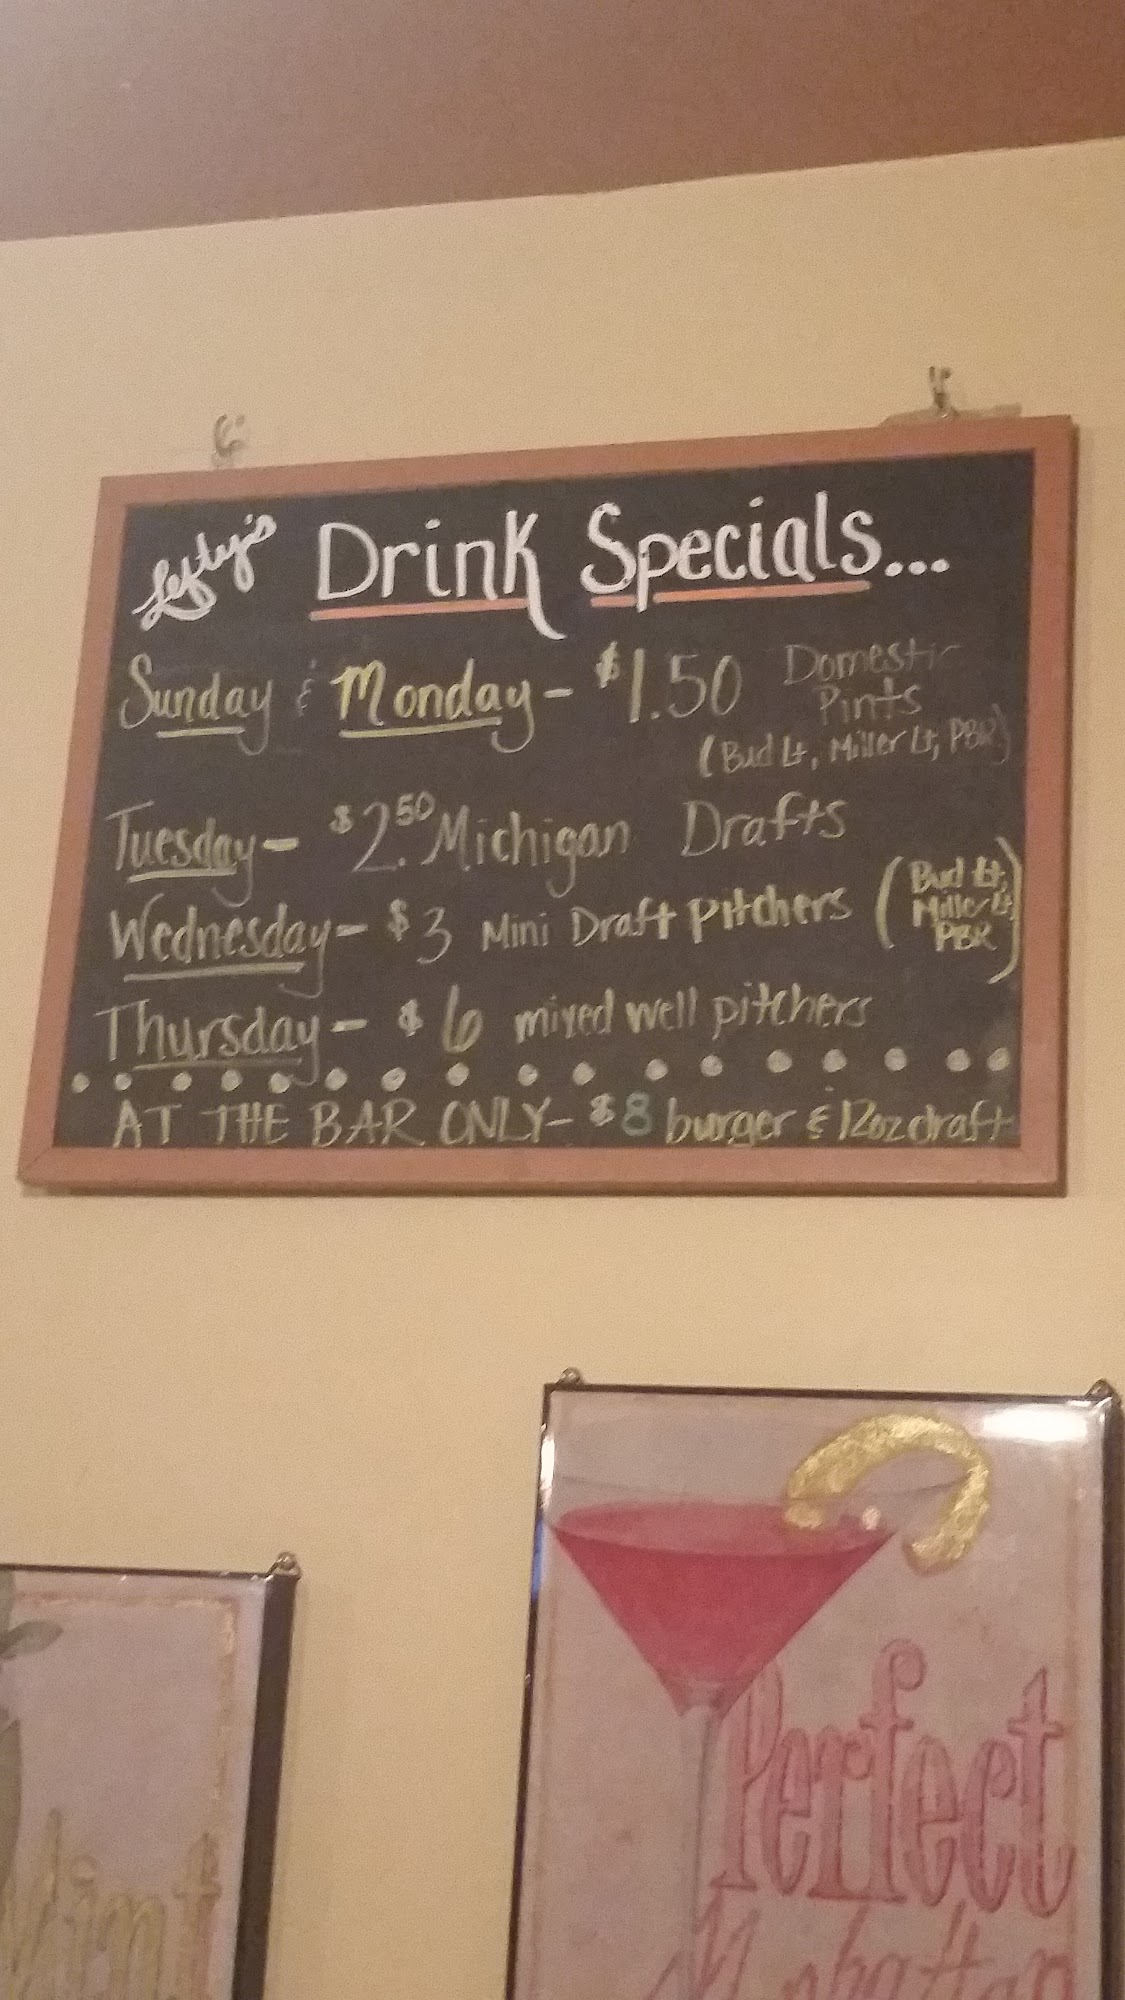 Lefty's Drink Specials...
Sunday & Monday - $1.50 Domestic
Pints
(Bud Lt, Miller Lt, PBR)
Tuesday - $2.50 Michigan Drafts
Wednesday - $3 Mini Draft Pitchers (Bud Lt,
Miller Lt,
PBR)
Thursday - $6 mixed well pitchers
AT THE BAR ONLY - $8 burger & 12oz draft
Perfect
Manhattan
Mint